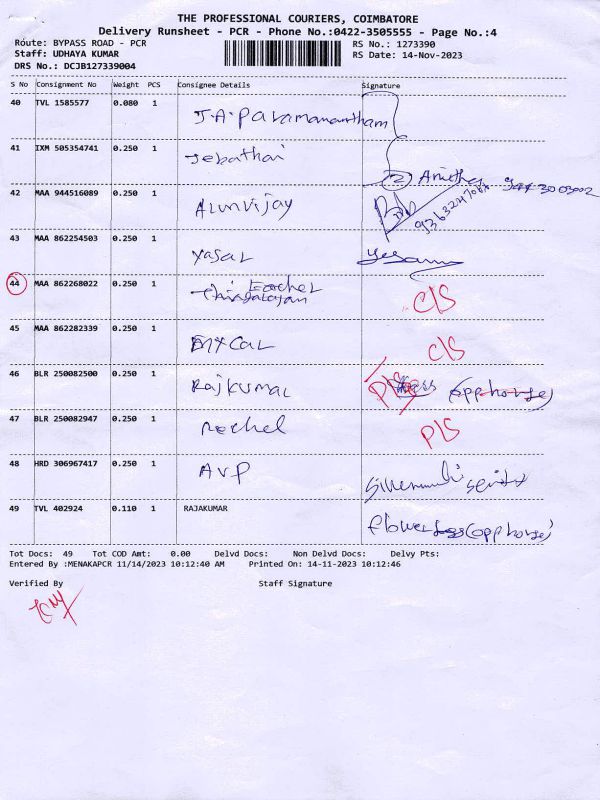 THE PROFESSIONAL COURIERS, COIMBATORE
Delivery Runsheet - PCR - Phone No.:0422-3505555 - Page No.:4
Route: BYPASS ROAD - PCR RS No.: 1273390
Staff: UDHAYA KUMAR RS Date: 14-Nov-2023
DRS No.: DCJB127339004
S No Consignment No Weight PCS Consignee Details Signature
40 TVL 1585577 0.080 1 J.A.Paramanantham
41 IXM 505354741 0.250 1 Jebathai Anitha
42 MAA 944516089 0.250 1 Arunvijay
43 MAA 862254503 0.250 1 Yasar
44 MAA 862268022 0.250 1 C/S
45 MAA 862282339 0.250 1 C/S
46 BLR 250082500 0.250 1 Rajkumar (opp house)
47 BLR 250082947 0.250 1 Rechel P/S
48 HRD 306967417 0.250 1 AVP
49 TVL 402924 0.110 1 RAJAKUMAR flower (opp house)
Tot Docs: 49 Tot COD Amt: 0.00 Delvd Docs: Non Delvd Docs: Delvy Pts:
Entered By :MENAKAPCR 11/14/2023 10:12:40 AM Printed On: 14-11-2023 10:12:46
Verified By Staff Signature